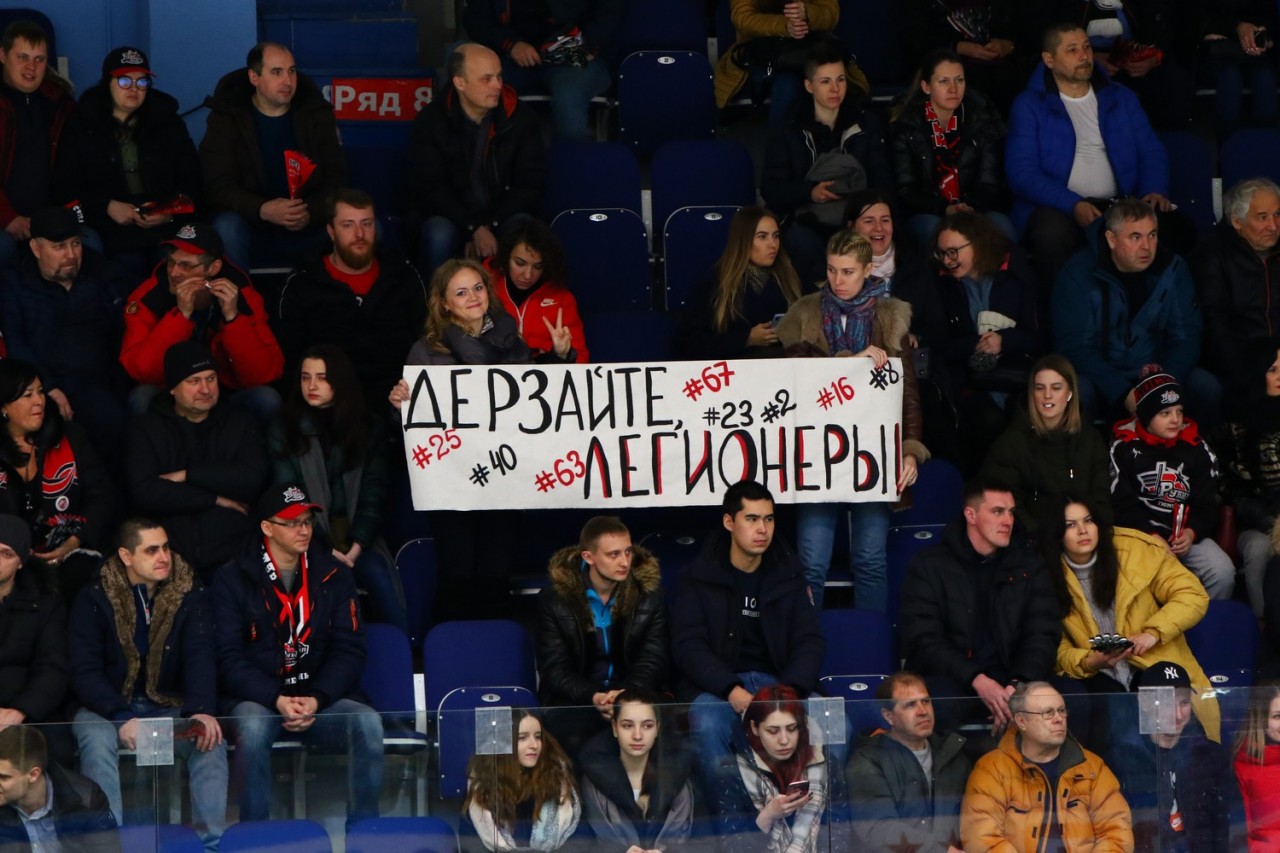 Ряд 8
ДЕРЗАЙТЕ, #67 #16 #8
#23 #2
#25 #40 #63 ЛЕГИОНЕРЫ!